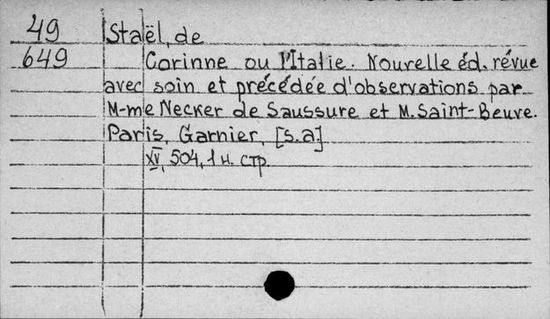 49 Staël, de
649 Corinne ou l'Italie. Nouvelle éd. révue
avec soin et précédée d'observations par
M-me Necker de Saussure et M. Saint-Beuve.
Paris, Garnier, [s.a.]
XV, 504, 1 н. стр.